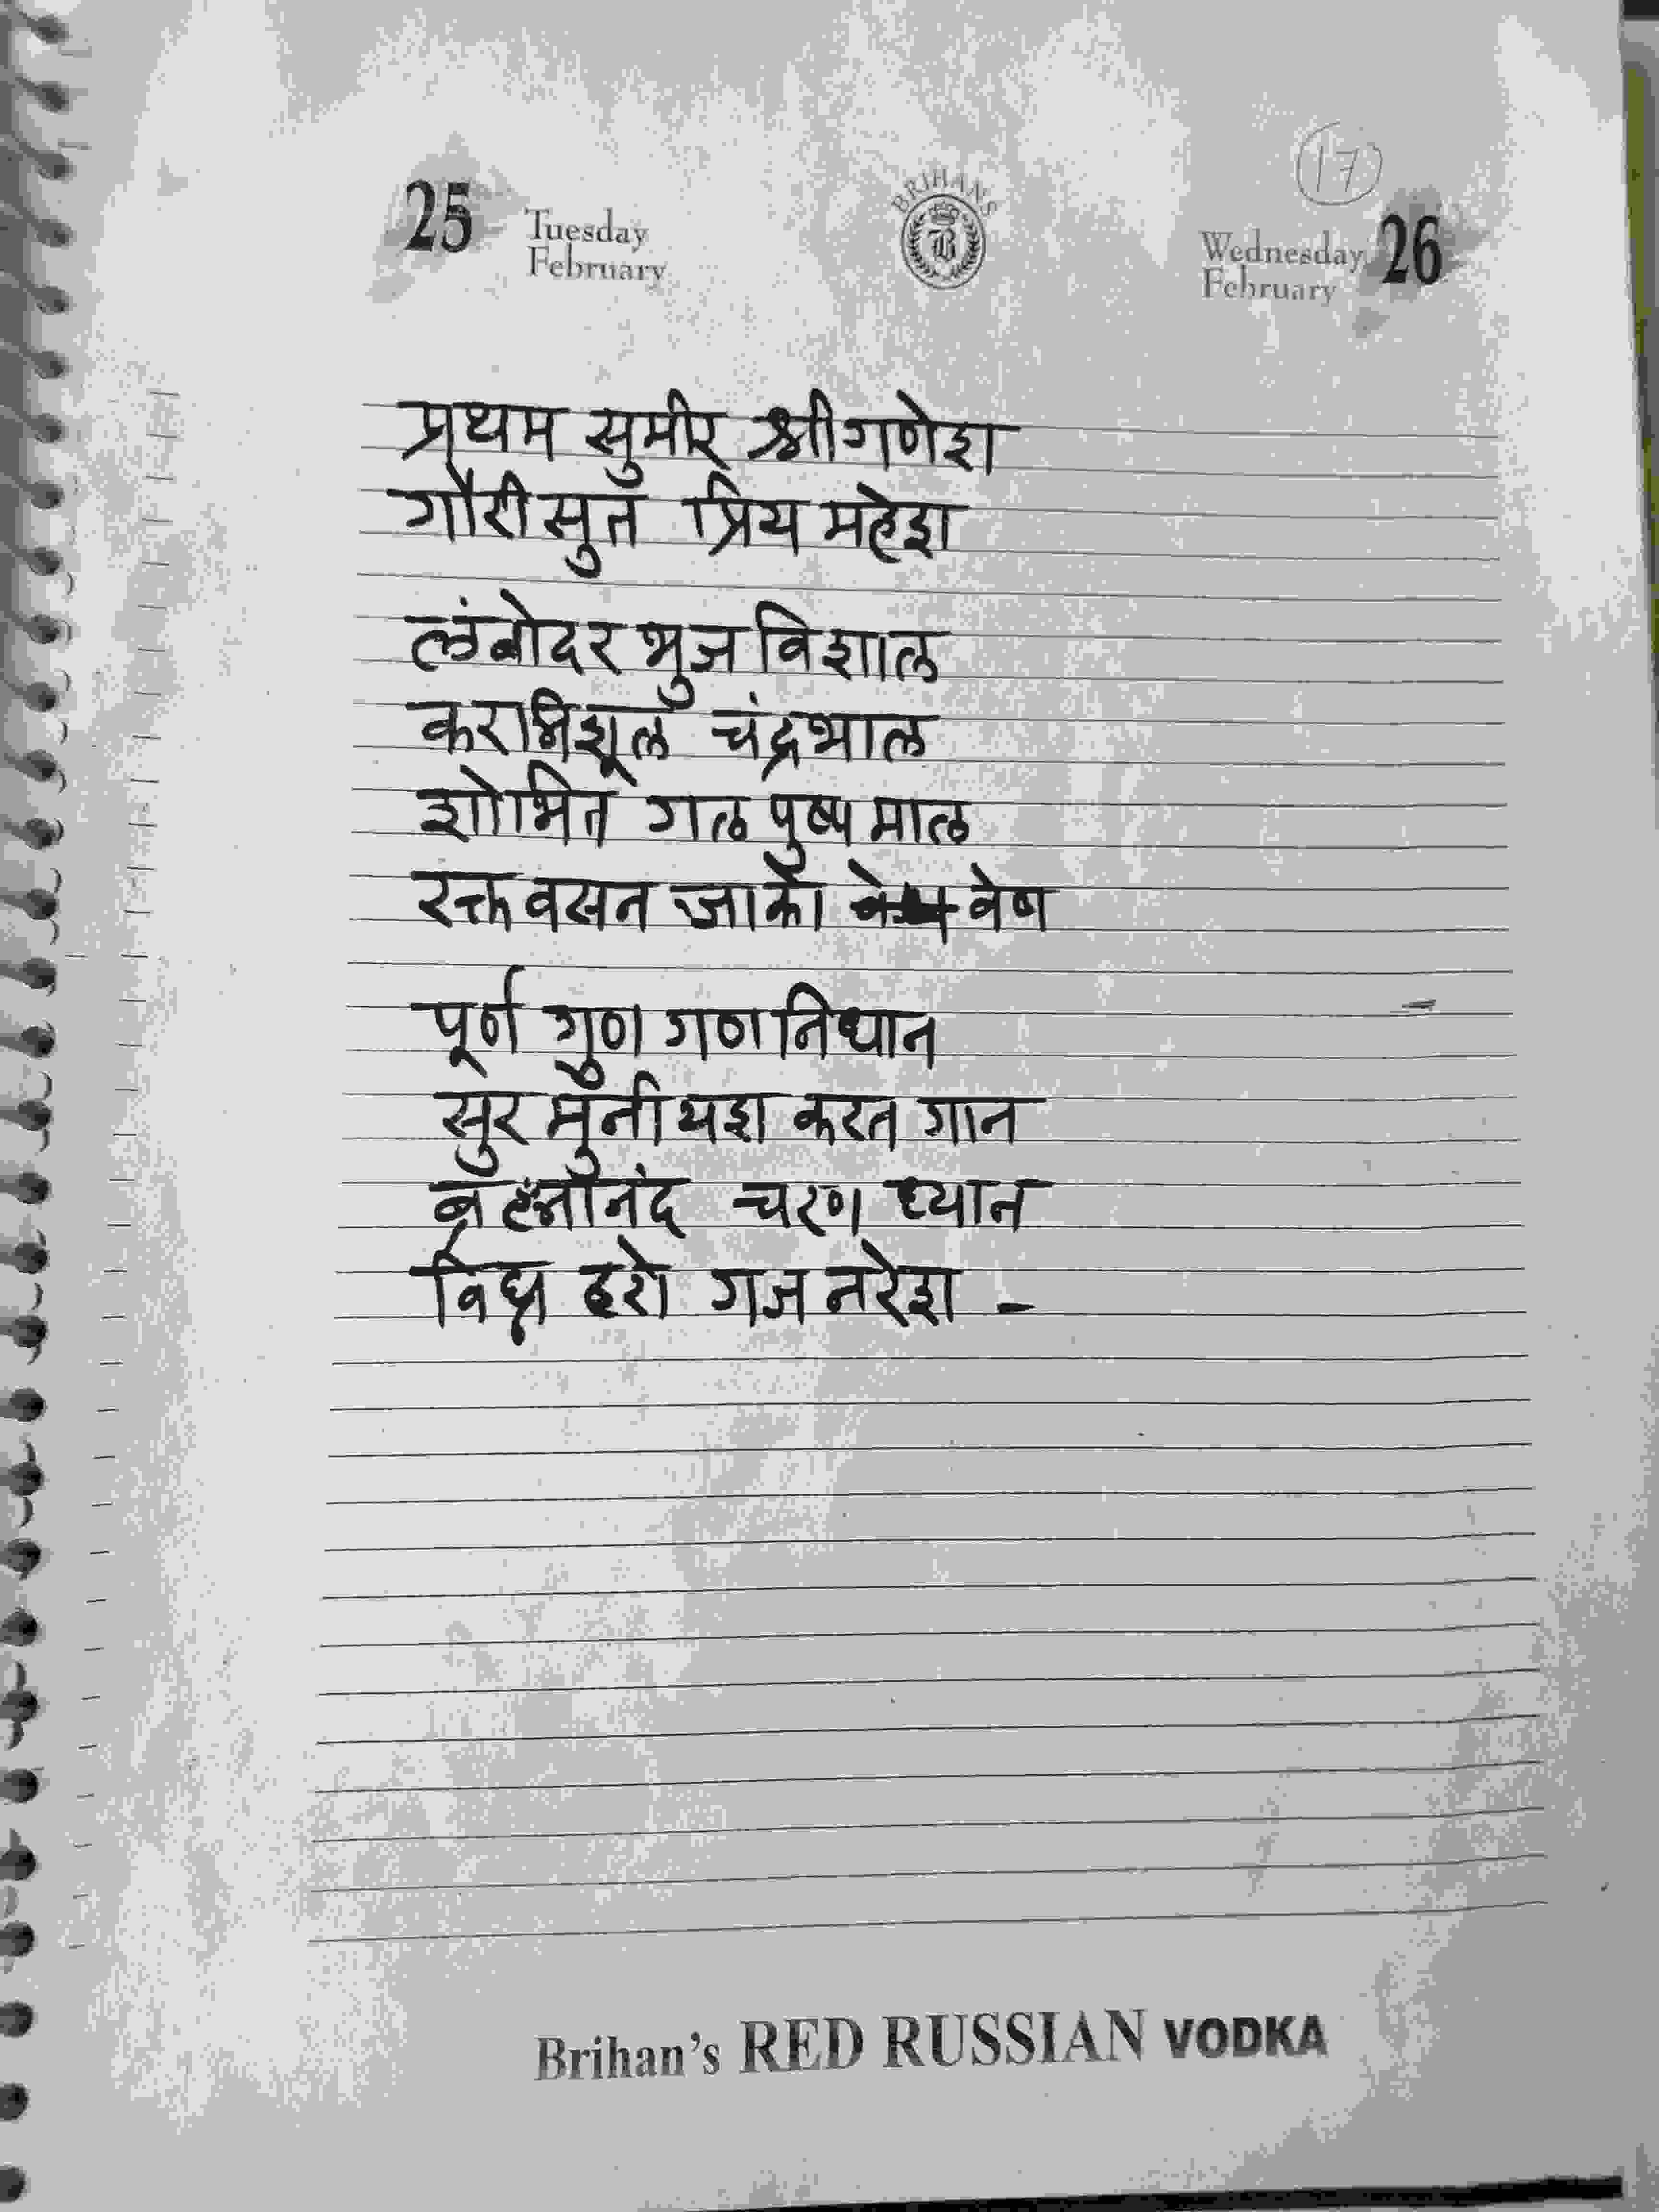 17
25 Tuesday February
BRIHANS
B
Wednesday February 26
प्रथम सुमीर श्रीगणेश
गौरीसुत प्रिय महेश
लंबोदर भुज विशाल
करत्रिशूल चंद्रभाल
शोभित गल पुष्प माल
रक्त वसन जाको वेष
पूर्ण गुण गण निधान
सुर मुनी यश करत गान
ब्रह्मानंद चरण ध्यान
विघ्न हरो गज नरेश -
Brihan's RED RUSSIAN VODKA